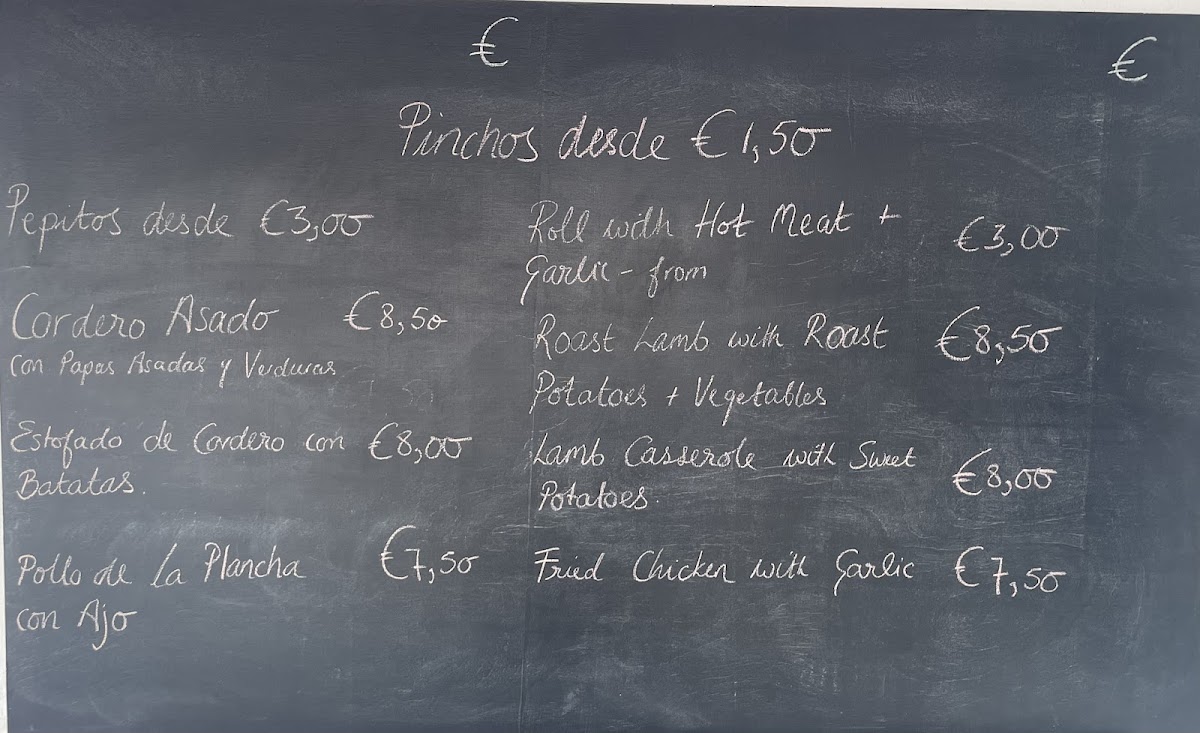 €
€
Pinchos desde €1,50
Pepitos desde €3,00
Cordero Asado €8,50
con Papas Asadas y Verduras
Estofado de Cordero con €8,00
Batatas.
Pollo de La Plancha €7,50
con Ajo
Roll with Hot Meat +
Garlic - from €3,00
Roast Lamb with Roast €8,50
Potatoes + Vegetables
Lamb Casserole with Sweet
Potatoes. €8,00
Fried Chicken with Garlic €7,50